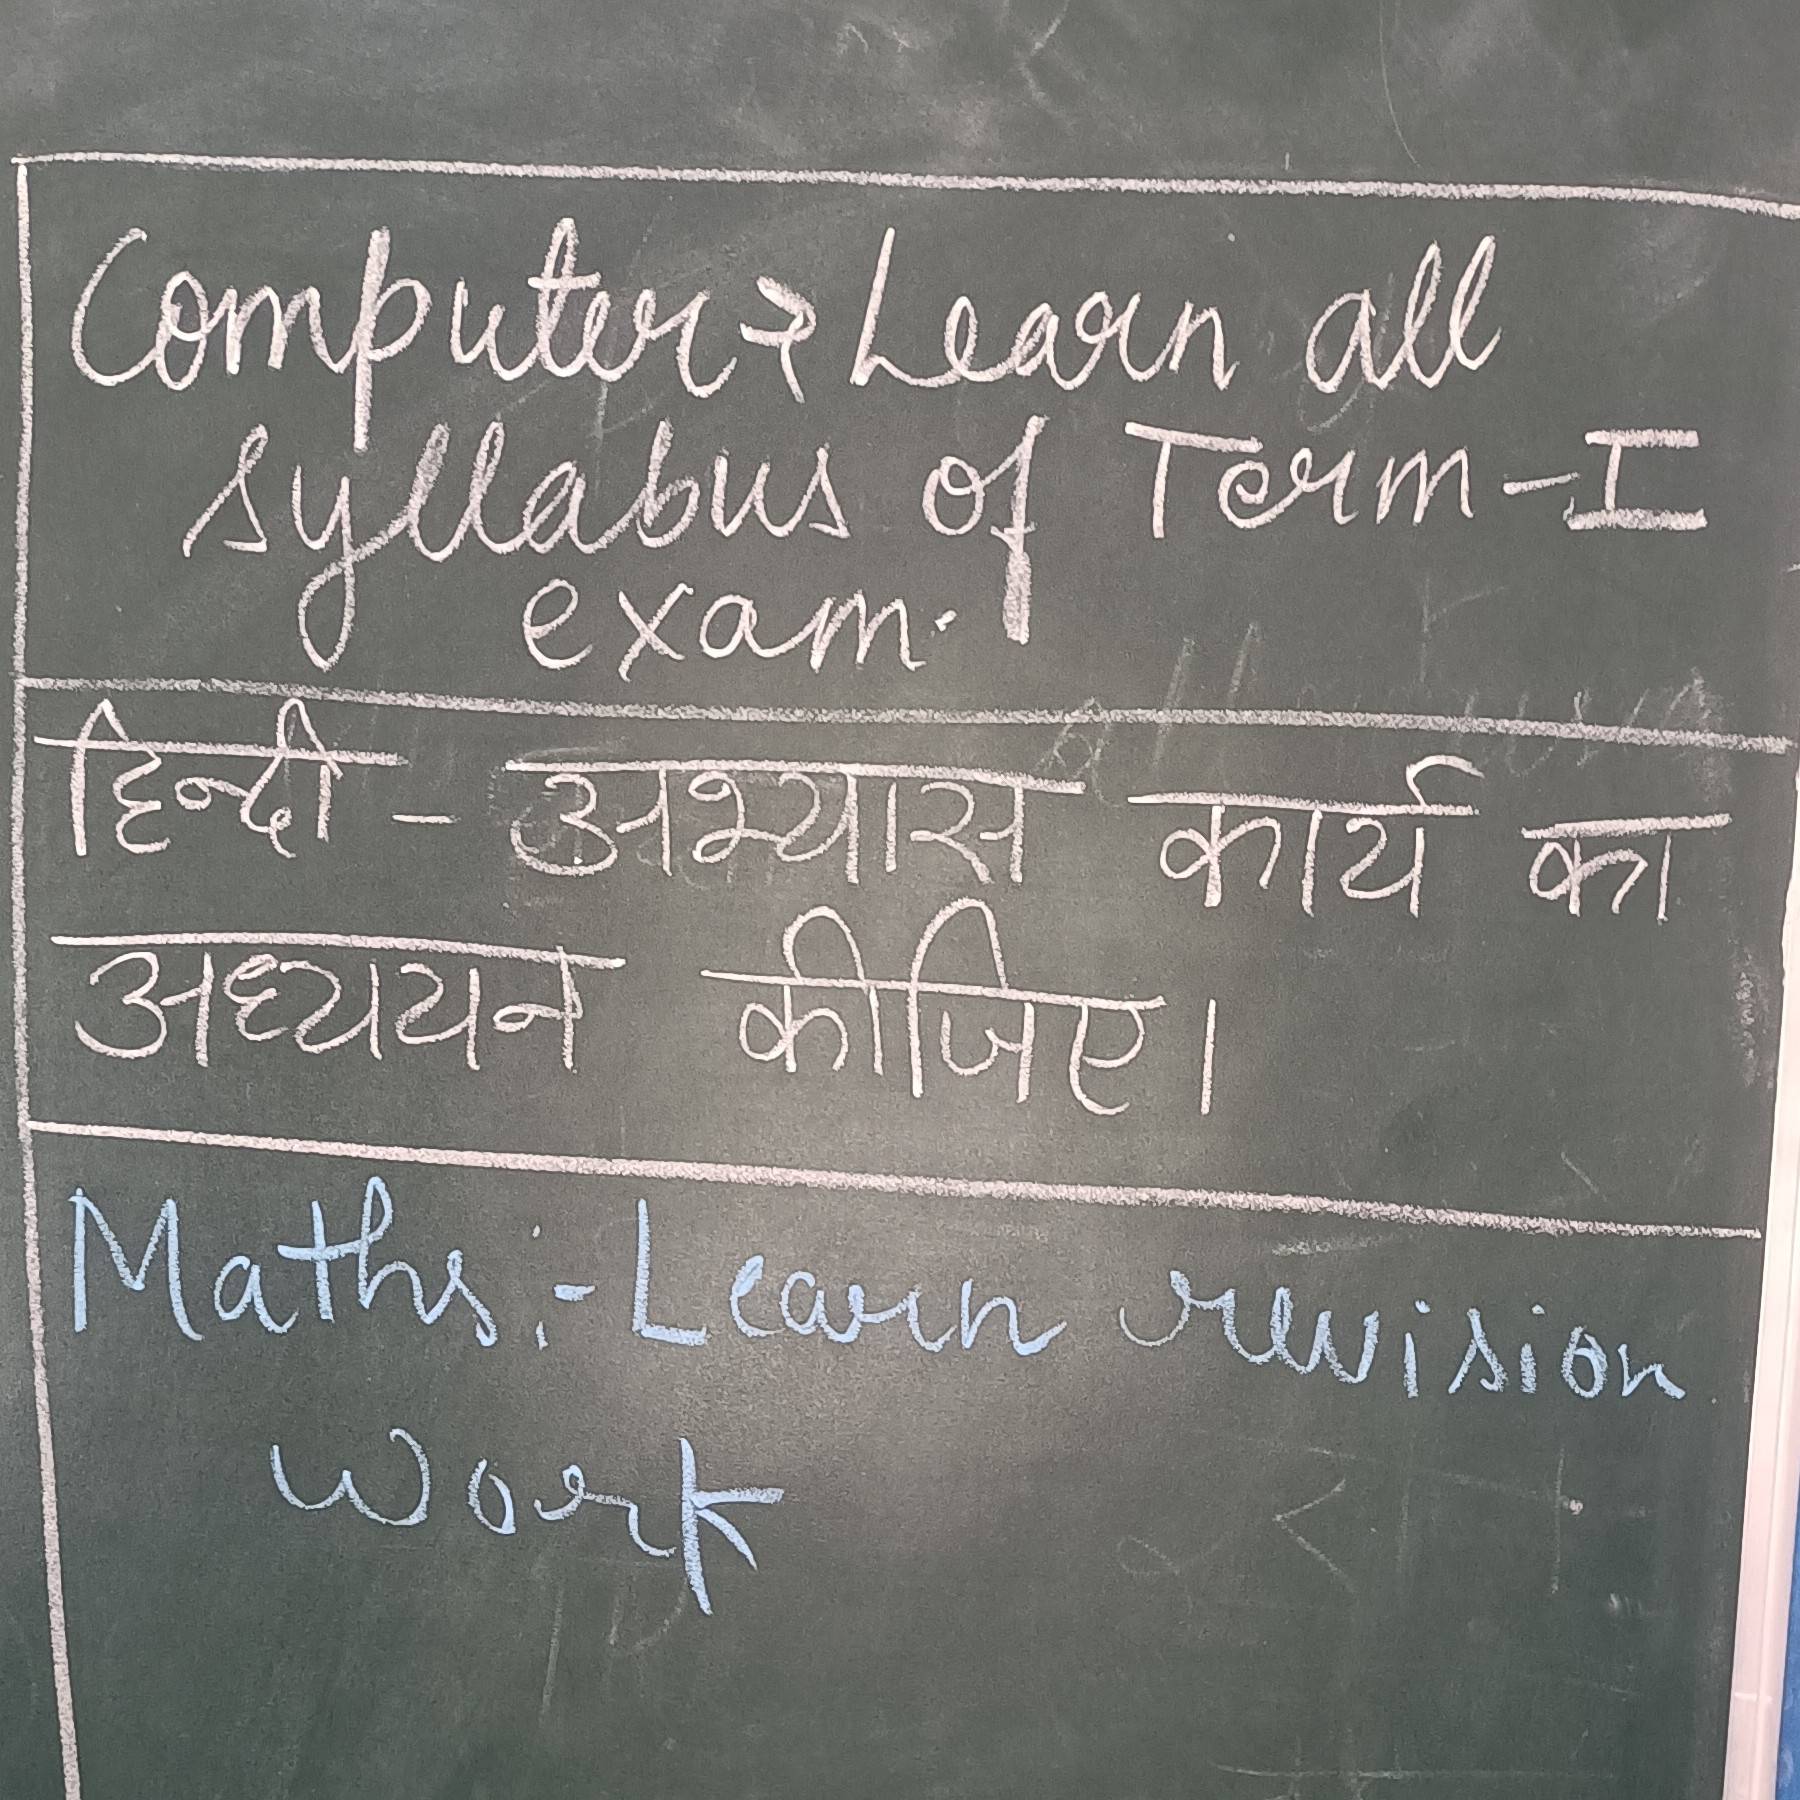 Computer → Learn all
syllabus of Term-I
exam.
हिन्दी - अभ्यास कार्य का
अध्ययन कीजिए।
Maths:- Learn revision
work